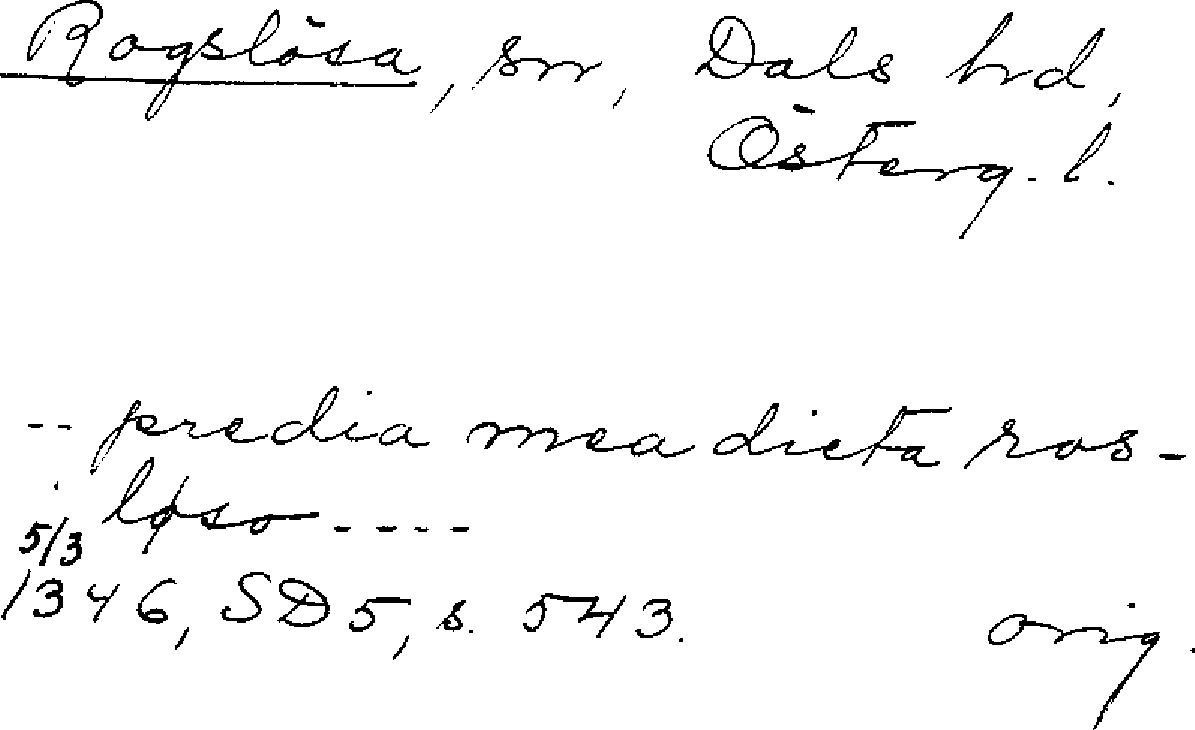 Rogslösa, sn, Dals hrd,
Österg. l.
-- predia mea dicta ros-
løso ----
5/3
1346, SD5, s. 543. orig.